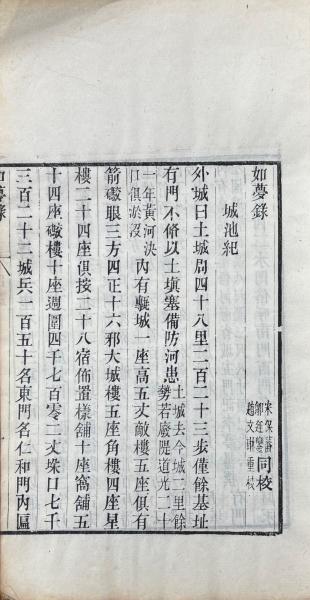 如夢錄
宋保蕃
鄒廷鑾同校
趙文琳重校
城池紀
外城曰土城周四十八里二百二十三步僅餘基址
有門不脩以土塡塞備防河患土城去今城二里餘勢若廢隄道光二十
一年黃河決口俱淤沒內有甎城一座高五丈敵樓五座俱有
箭礮眼三方四正十六邪大城樓五座角樓四座星
樓二十四座俱按二十八宿佈置樣舖十座窩舖五
十四座礮樓十座週圍四千七百零二丈垛口七千
三百二十二城兵一百五十名東門名仁和門內區
如夢錄